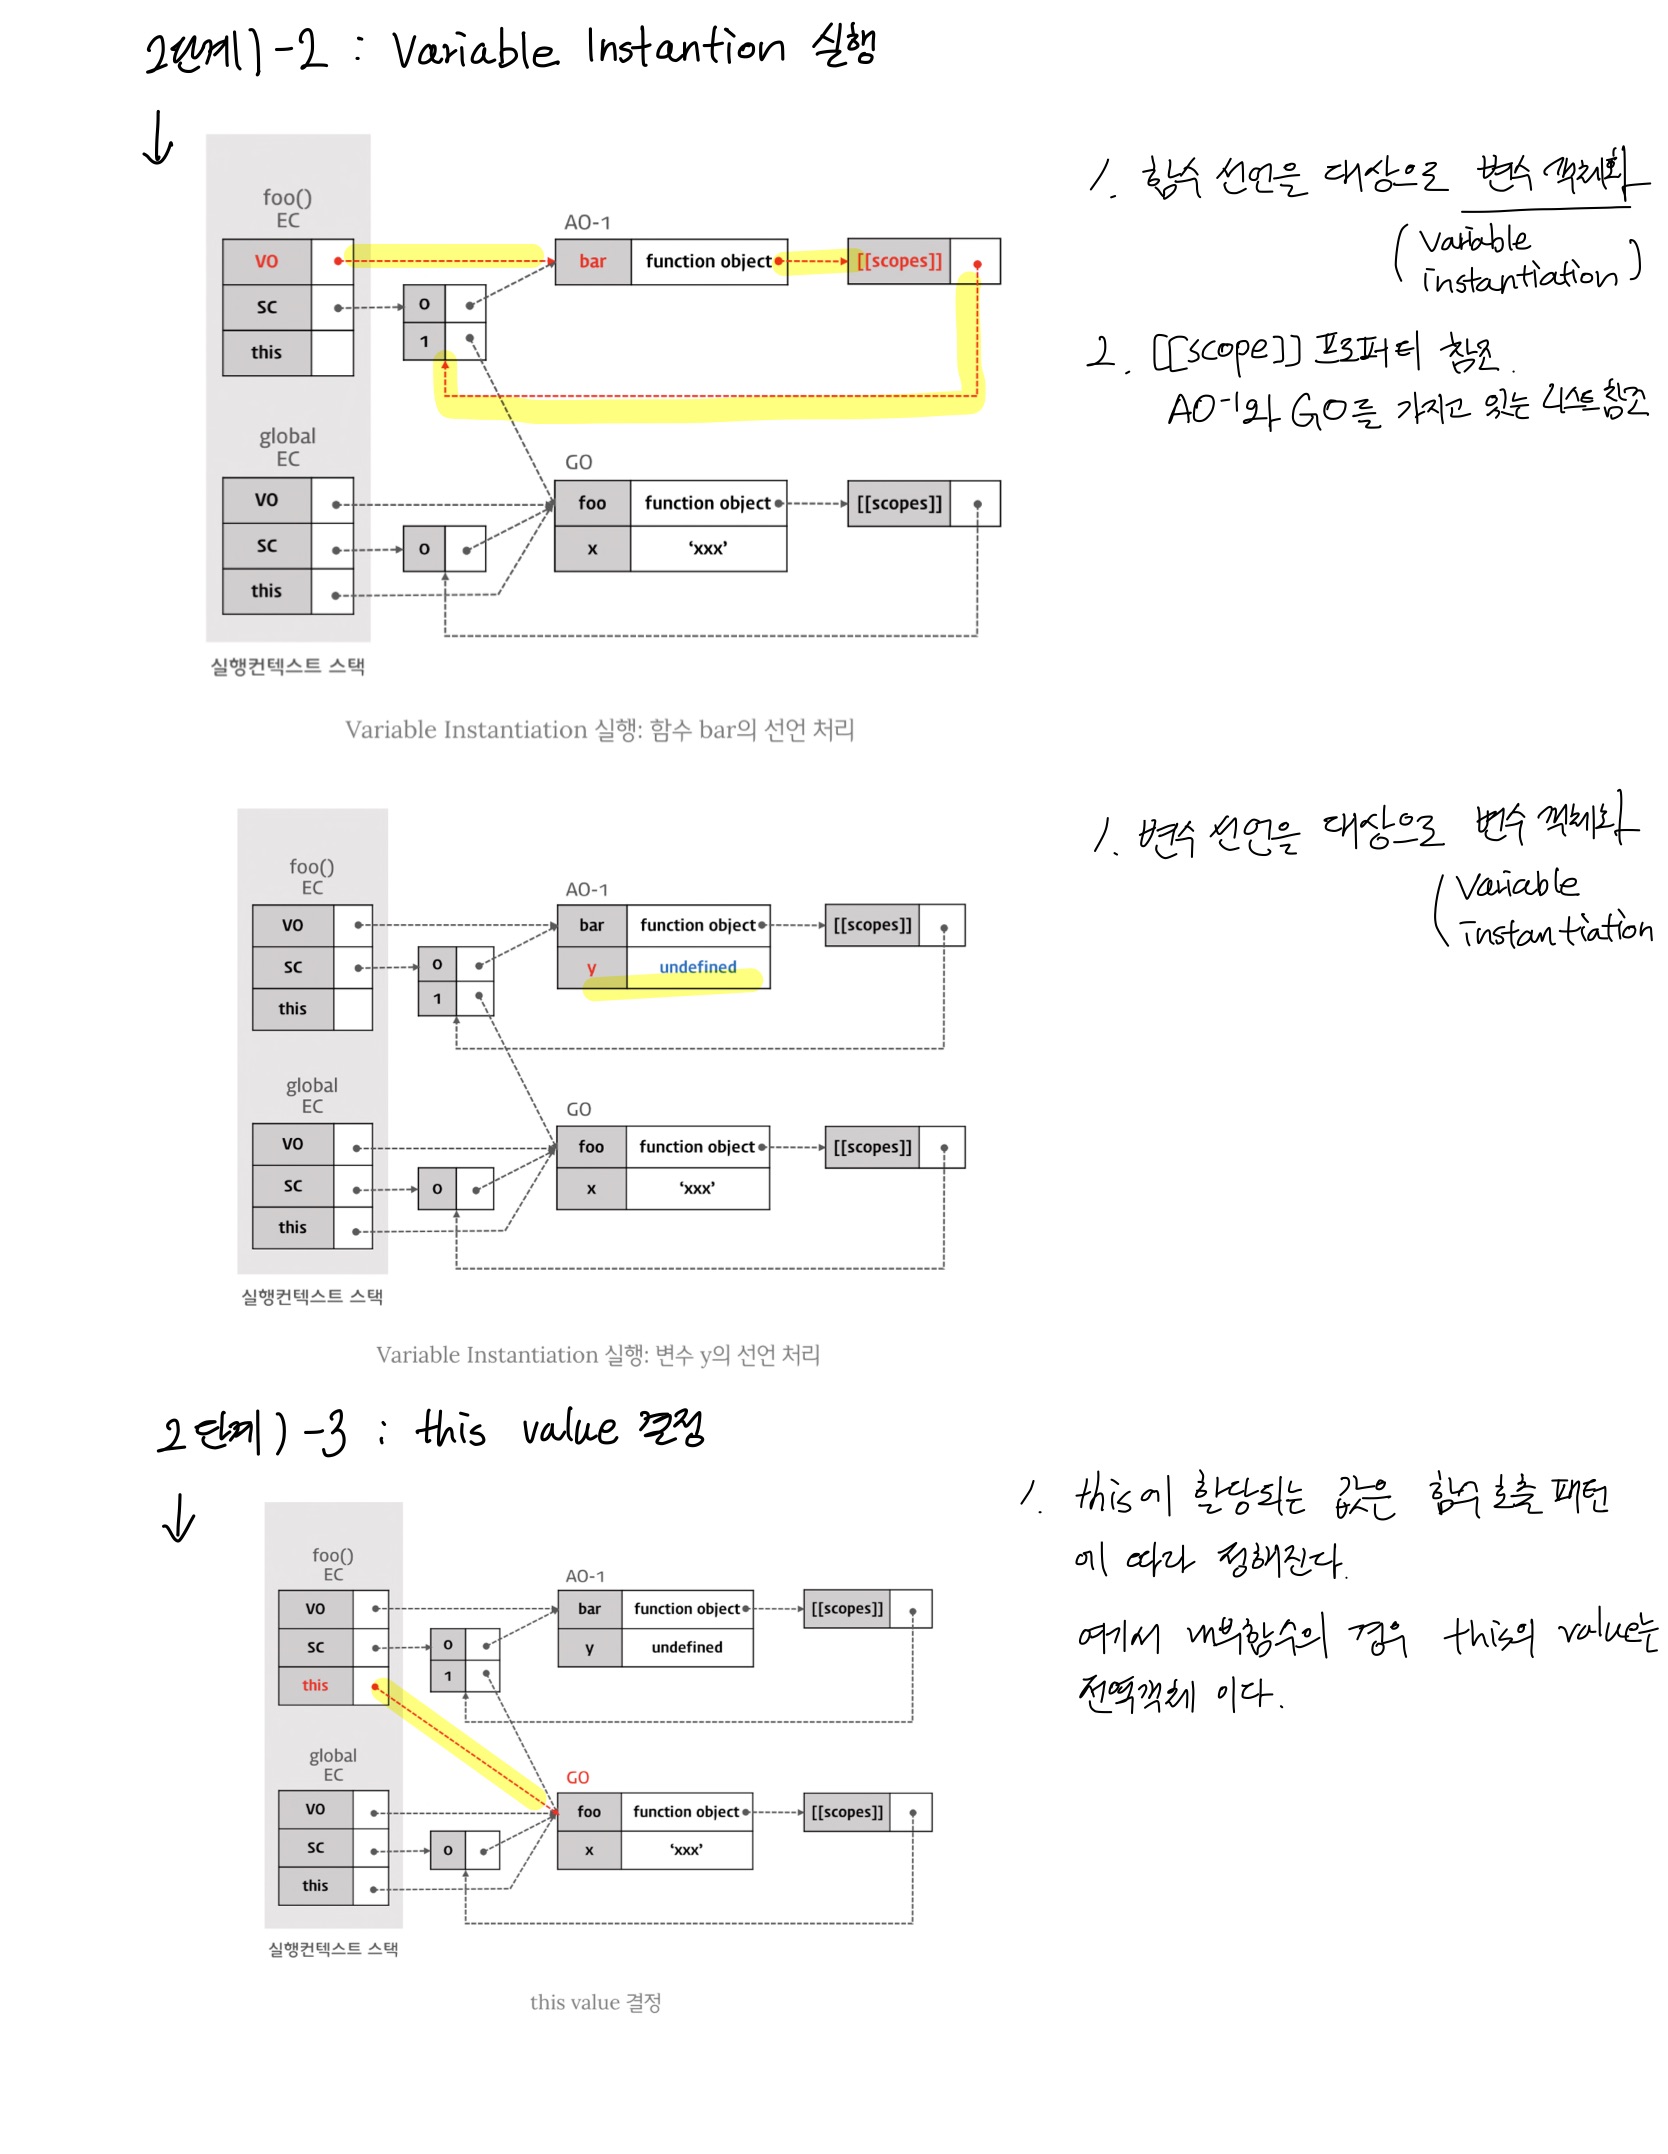 2단계)-2 : Variable Instantion 실행
↓
foo()
EC
VO
SC
this
0
1
AO-1
bar function object
[[scopes]]
global
EC
VO
SC
this
0
GO
foo function object
x ‘xxx’
[[scopes]]
실행컨텍스트 스택
Variable Instantiation 실행: 함수 bar의 선언 처리
1. 함수 선언을 대상으로 변수 객체화
(variable
instantiation)
2. [[scope]] 프로퍼티 참조.
AO-1와 GO를 가지고 있는 리스트 참조
foo()
EC
VO
SC
this
0
1
AO-1
bar function object
y undefined
[[scopes]]
global
EC
VO
SC
this
0
GO
foo function object
x ‘xxx’
[[scopes]]
실행컨텍스트 스택
Variable Instantiation 실행: 변수 y의 선언 처리
1. 변수 선언을 대상으로 변수 객체화
(variable
instantiation
2단계)-3 : this value 결정
↓
foo()
EC
VO
SC
this
0
1
AO-1
bar function object
y undefined
[[scopes]]
global
EC
VO
SC
this
0
GO
foo function object
x ‘xxx’
[[scopes]]
실행컨텍스트 스택
this value 결정
1. this에 할당되는 값은 함수 호출 패턴
에 따라 정해진다.
여기서 내부함수의 경우 this의 value는
전역객체 이다.